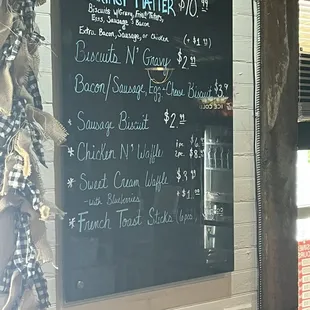 Platter $10.
Biscuits w/Gravy, Fried Taters,
Eggs, Sausage & Bacon
Extra: Bacon, Sausage, or Chicken (+ $1.)
Biscuits N' Gravy $2.
Bacon/Sausage, Egg + Cheese Biscuit $3.
* Sausage Biscuit $2.
* Chicken N' Waffle
* Sweet Cream Waffle $3
- with Blueberries $1.
* French Toast Sticks (6 pcs)